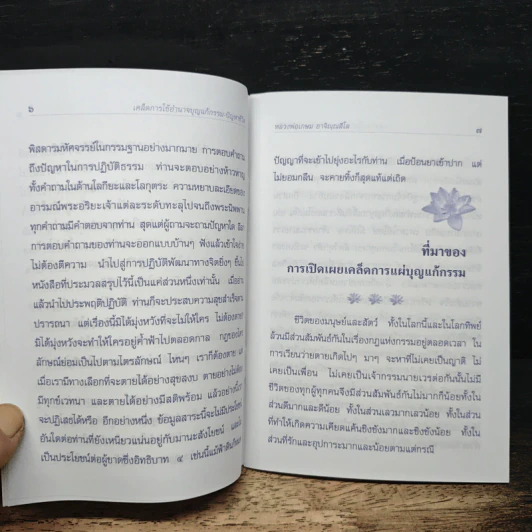 ๖
เคล็ดการใช้อำนาจบุญแก้กรรม-ปัญหาชีวิต
พิสดารมหัศจรรย์ในกรรมฐานอย่างมากมาย การตอบคำถาม
ถึงปัญหาในการปฏิบัติธรรม ท่านจะตอบอย่างห้าวหาญ
ทั้งคำถามในด้านโลกียะและโลกุตระ ความหยาบละเอียดของ
อารมณ์พระอริยะเจ้าแต่ละระดับทะลุไปจนถึงพระนิพพาน
ทุกคำถามมีคำตอบจากท่าน สุดแต่ผู้ถามจะถามปัญหาใด
การตอบคำถามของท่านจะออกแบบบ้านๆ ฟังแล้วเข้าใจง่าย
ไม่ต้องตีความ นำไปสู่การปฏิบัติพัฒนาทางจิตยิ่งๆ ขึ้นไป
หนังสือที่ประมวลสรุปไว้นี้เป็นแค่ส่วนหนึ่งเท่านั้น เมื่ออ่าน
แล้วนำไปประพฤติปฏิบัติ ท่านก็จะประสบความสุขสำเร็จตาม
ปรารถนา แต่เรื่องนี้มิได้มุ่งหวังที่จะให้ใคร ไม่ต้องตาย
มิได้มุ่งหวังจะให้ใครอยู่ค้ำฟ้าไปตลอดกาล กฎของไตร
ลักษณ์ย่อมเป็นไปตามไตรลักษณ์ ไหนๆ เราก็ต้องตาย
เมื่อเรามีทางเลือกที่จะตายได้อย่างสุขสงบ ตายอย่างไม่ต้อง
มีทุกข์เวทนา และตายได้อย่างมีสติพร้อม แล้วอย่างนี้เรา
จะปฏิเสธได้หรือ อีกอย่างหนึ่ง ข้อมูลสาระนี้จะไม่มีประโยชน์
อันใดต่อท่านที่ยังเหนียวแน่นอยู่กับมานะสังโยชน์
เป็นประโยชน์ต่อผู้ขาดซึ่งอิทธิบาท ๔ เช่นนี้แม้ฟ้าดิน
หลวงพ่อเกษม อาจิณฺณสีโล
๗
ปัญญาที่จะเข้าไปยุ่งอะไรกับท่าน เมื่อป้อนยาเข้าปาก แต่
ไม่ยอมกลืน จะคายทิ้งก็สุดแท้แต่เถิด
ที่มาของ
การเปิดเผยเคล็ดการแผ่บุญแก้กรรม
ชีวิตของมนุษย์และสัตว์ ทั้งในโลกนี้และในโลกทิพย์
ล้วนมีส่วนสัมพันธ์กันในเรื่องกฎแห่งกรรมอยู่ตลอดเวลา ใน
การเวียนว่ายตายเกิดไปๆ มาๆ จะหาที่ไม่เคยเป็นญาติ ไม่
เคยเป็นเพื่อน ไม่เคยเป็นเจ้ากรรมนายเวรต่อกันนั้นไม่มี
ชีวิตของทุกผู้ทุกคนจึงมีส่วนสัมพันธ์กันไม่มากก็น้อยทั้งใน
ส่วนดีมากและดีน้อย ทั้งในส่วนเลวมากเลวน้อย ทั้งในส่วน
ที่ทำให้เกิดความเคียดแค้นชิงชังมากและชิงชังน้อย ทั้งใน
ส่วนที่รักและอุปการะมากและน้อยตามแต่กรณี